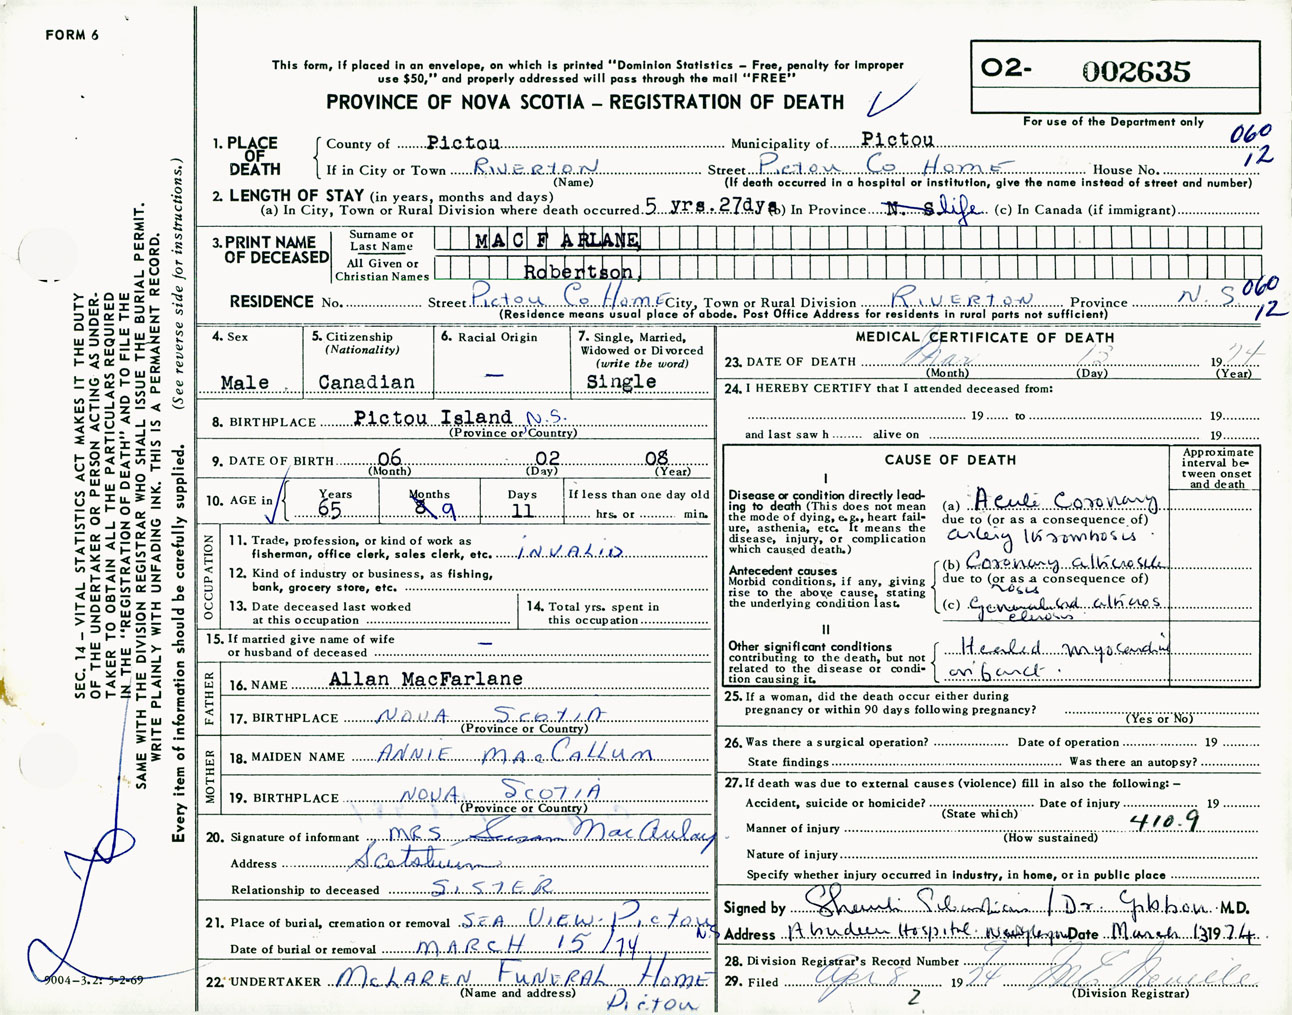 FORM 6
This form, if placed in an envelope, on which is printed "Dominion Statistics – Free, penalty for improper
use $50," and properly addressed will pass through the mail "FREE"
PROVINCE OF NOVA SCOTIA – REGISTRATION OF DEATH
O2- 002635
For use of the Department only
1. PLACE OF DEATH
County of Pictou Municipality of Pictou 060
If in City or Town RIVERTON Street Pictou Co Home House No. 12
(Name) (If death occurred in a hospital or institution, give the name instead of street and number)
2. LENGTH OF STAY (in years, months and days)
(a) In City, Town or Rural Division where death occurred. 5 yrs.27dys (b) In Province N. S. life (c) In Canada (if immigrant)
3. PRINT NAME OF DECEASED
Surname or Last Name MAC FARLANE
All Given or Christian Names Robertson,
RESIDENCE No. Street Pictou Co Home City, Town or Rural Division RIVERTON Province N. S 060 12
(Residence means usual place of abode. Post Office Address for residents in rural parts not sufficient)
4. Sex Male
5. Citizenship (Nationality) Canadian
6. Racial Origin –
7. Single, Married, Widowed or Divorced (write the word) Single
8. BIRTHPLACE Pictou Island N.S.
(Province or Country)
9. DATE OF BIRTH 06 02 08
(Month) (Day) (Year)
10. AGE in Years 65 Months 8 9 Days 11 If less than one day old hrs. or min.
OCCUPATION
11. Trade, profession, or kind of work as fisherman, office clerk, sales clerk, etc. INVALID
12. Kind of industry or business, as fishing, bank, grocery store, etc.
13. Date deceased last worked at this occupation
14. Total yrs. spent in this occupation
15. If married give name of wife or husband of deceased –
FATHER
16. NAME Allan MacFarlane
17. BIRTHPLACE NOVA SCOTIA
(Province or Country)
MOTHER
18. MAIDEN NAME ANNIE MacCallum
19. BIRTHPLACE NOVA SCOTIA
(Province or Country)
20. Signature of informant MRS Susan MacAulay
Address Scotsburn
Relationship to deceased SISTER
21. Place of burial, cremation or removal SEA VIEW. Pictou N.S
Date of burial or removal MARCH 15/74
22. UNDERTAKER McLAREN FUNERAL HOME
(Name and address) Pictou
MEDICAL CERTIFICATE OF DEATH
23. DATE OF DEATH Mar 13 1974
(Month) (Day) (Year)
24. I HEREBY CERTIFY that I attended deceased from:
19 to 19
and last saw h alive on 19
CAUSE OF DEATH
Approximate interval between onset and death
I
Disease or condition directly leading to death (This does not mean the mode of dying, e.g., heart failure, asthenia, etc. It means the disease, injury, or complication which caused death.)
(a) Acute Coronary
due to (or as a consequence of)
artery thrombosis.
Antecedent causes
Morbid conditions, if any, giving rise to the above cause, stating the underlying condition last.
(b) Coronary atheroscle
due to (or as a consequence of)
rosis
(c) Generalized atheros
clerosis
II
Other significant conditions
contributing to the death, but not related to the disease or condition causing it.
Healed myocardial
infarct.
25. If a woman, did the death occur either during pregnancy or within 90 days following pregnancy?
(Yes or No)
26. Was there a surgical operation? Date of operation 19
State findings Was there an autopsy?
27. If death was due to external causes (violence) fill in also the following: –
Accident, suicide or homicide? Date of injury 19
(State which)
Manner of injury 410.9
(How sustained)
Nature of injury
Specify whether injury occurred in industry, in home, or in public place
Signed by / Dr. Gibbon M.D.
Address Aberdeen Hospital New Glasgow Date March 13 1974.
28. Division Registrar's Record Number
29. Filed Apr 8 1974
(Division Registrar)
2
SEC. 14 – VITAL STATISTICS ACT MAKES IT THE DUTY
OF THE UNDERTAKER OR PERSON ACTING AS UNDER-
TAKER TO OBTAIN ALL THE PARTICULARS REQUIRED
IN THE "REGISTRATION OF DEATH" AND TO FILE THE
SAME WITH THE DIVISION REGISTRAR WHO SHALL ISSUE THE BURIAL PERMIT.
WRITE PLAINLY WITH UNFADING INK. THIS IS A PERMANENT RECORD.
Every item of information should be carefully supplied. (See reverse side for instructions.)
9004-3.2: 5-2-69